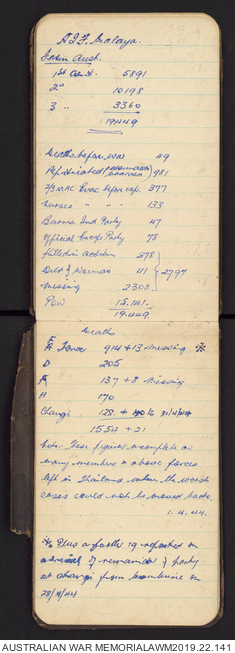 A.I.F. Malaya.
From Aust.
1st 5891
2" 10198
3 " 3360
19449
Deaths before war 49
Repatriated 981
2/3 MAC Evac before cap. 377
Nurses " " " 133
Burma Ind Party 47
Official Escape Party 78
Killed in action 378
Died of Wounds 111 } 2797
Missing 2308
POW 15.141.
19.449
Deaths
F
A Force 914 + 13 missing %
D 205
F 137 + 8 missing
H 170
Changi 128. + to 31/4/44
1554 + 21
Note. These figures incomplete as
many members of above forces
left in Thailand when the worst
cases could not be moved back.
1. 4. 44.
% Plus a further 19 reported on
arrival of remainder of party
at Changi from on
28/4/44
AUSTRALIAN WAR MEMORIAL AWM2019.22.141